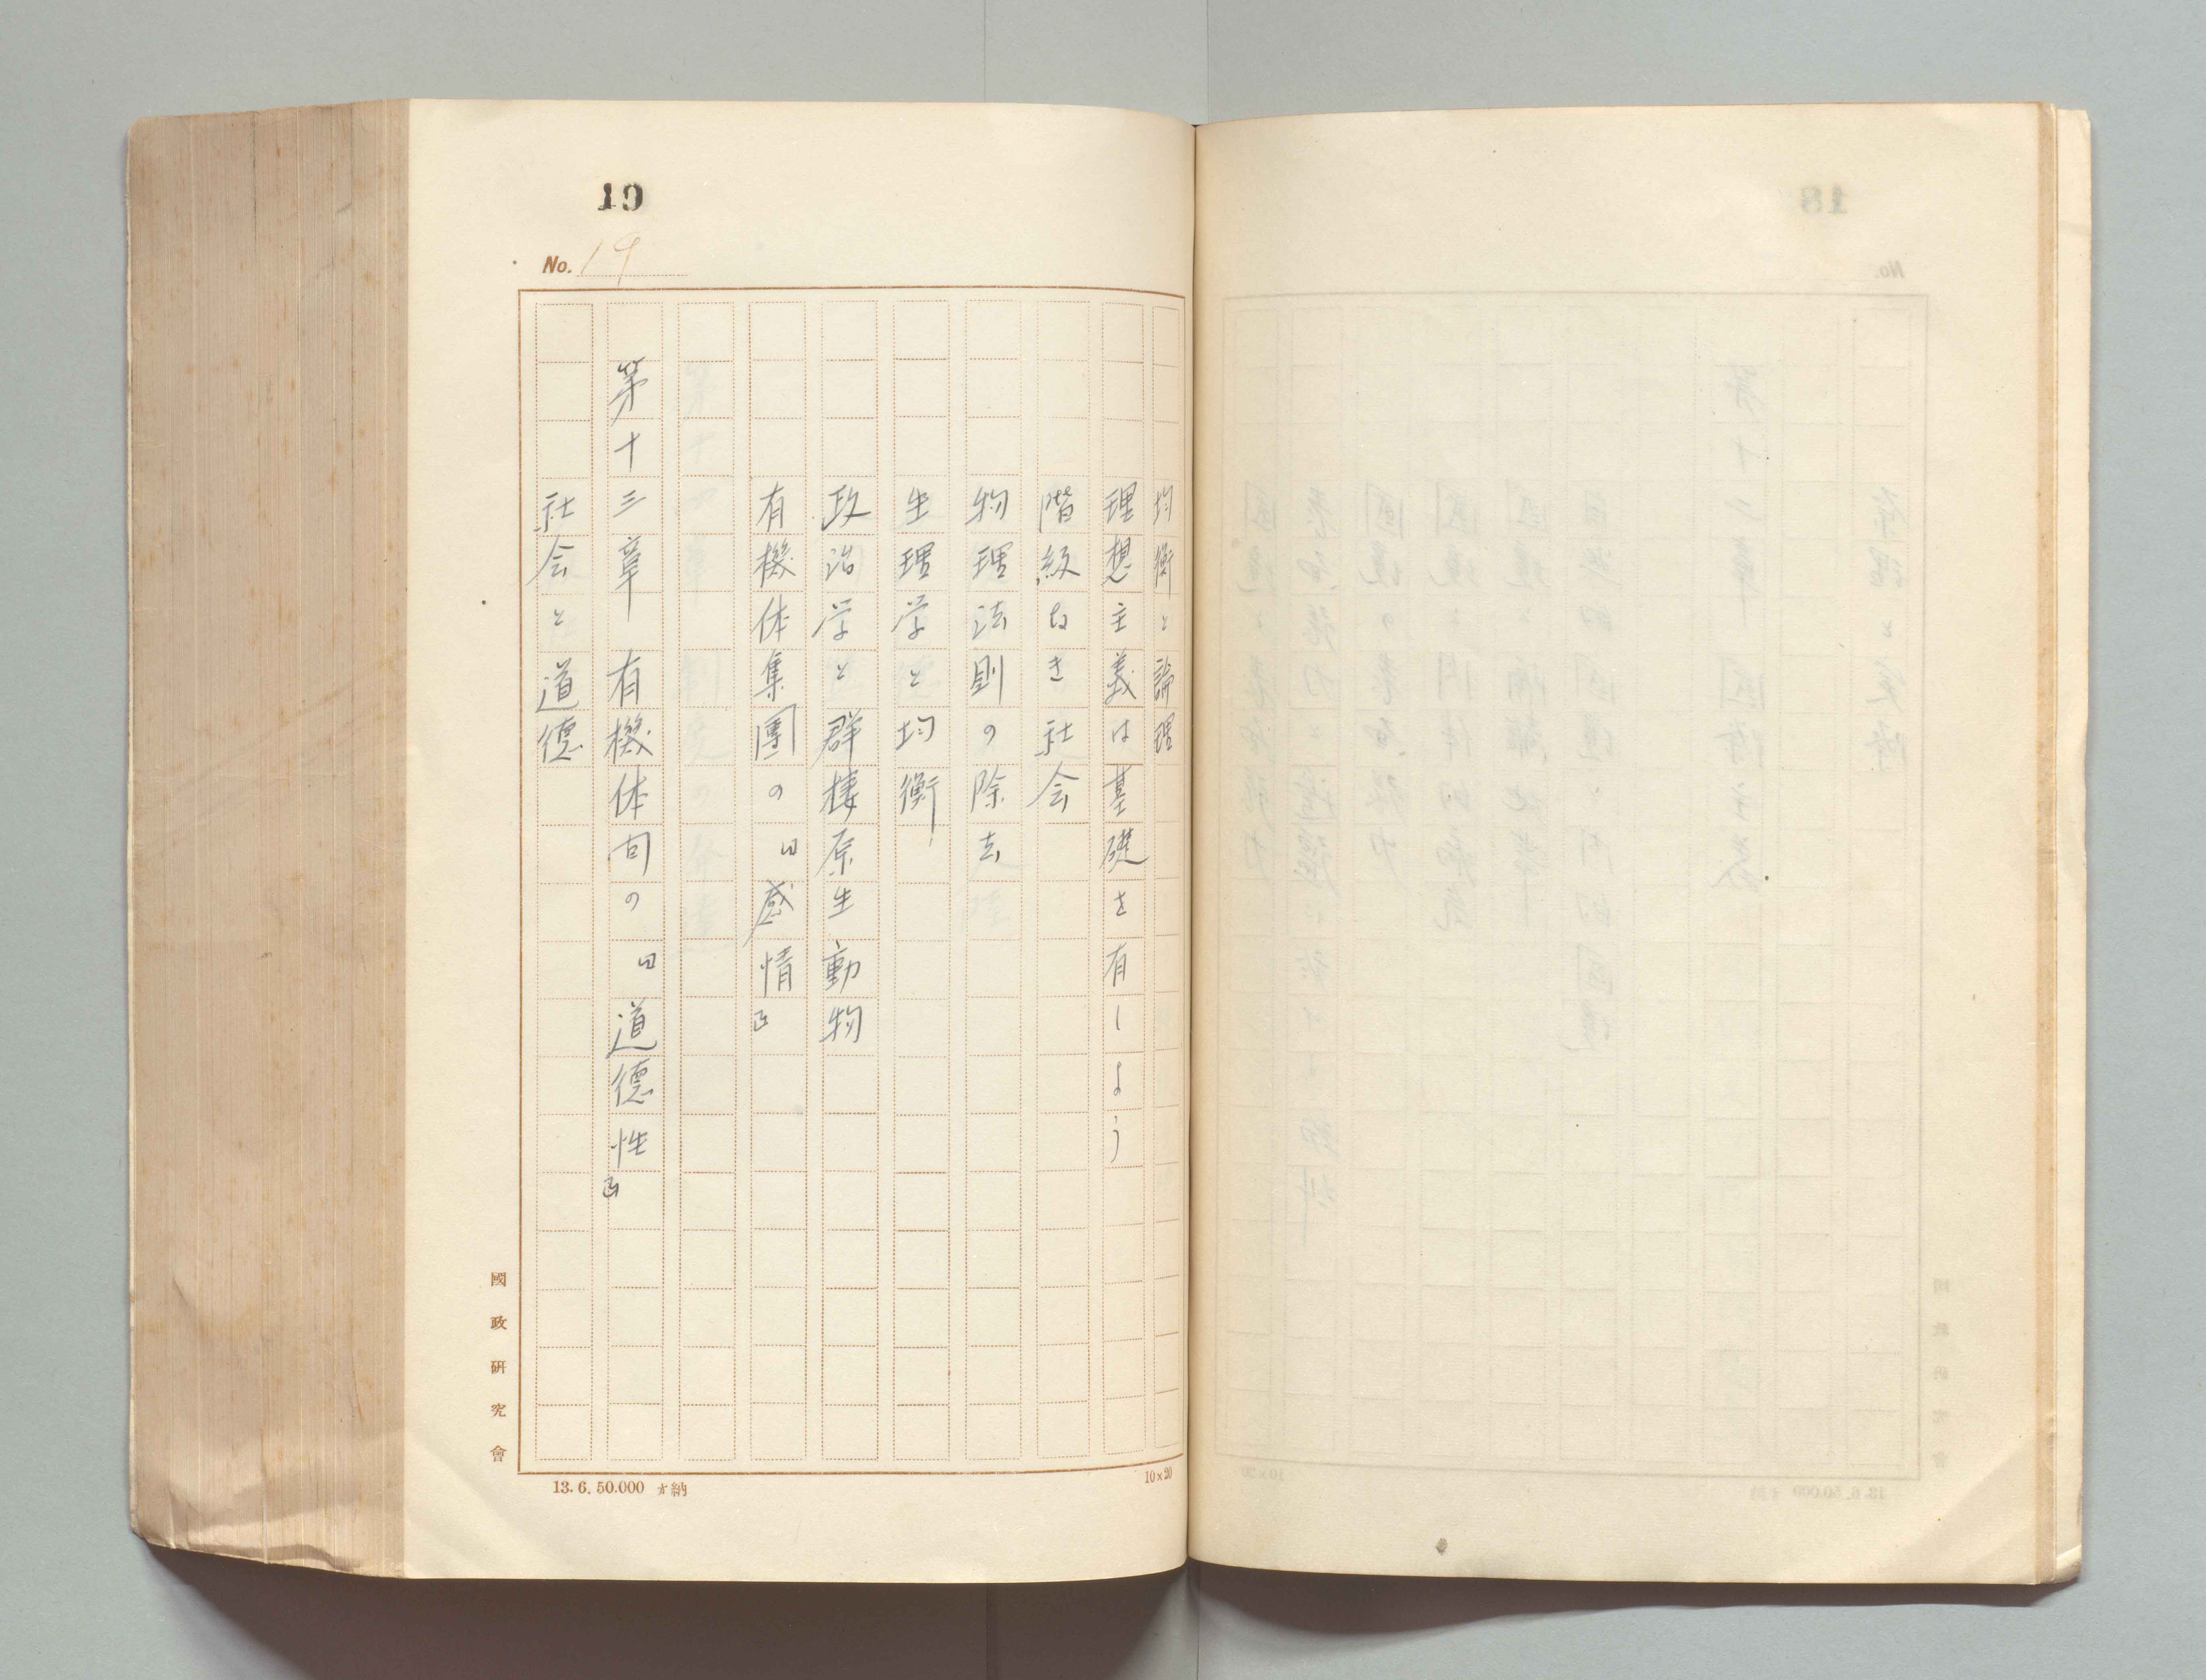 19
No. 19
均衡と論理
理想主義は基礎を有しよう
階級なき社会
物理法則の除去
生理学と均衡
政治学と群棲原生動物
有機体集團の『感情』
第十三章 有機体句の『道德性』
社会と道德
國政研究會
13.6.50.000 納
10×20